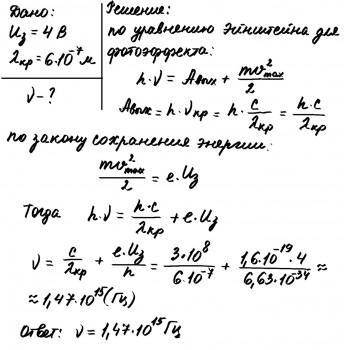 Дано:
U₃ = 4 В
λкр = 6·10⁻⁷ м
ν - ?
Решение:
по уравнению Эйнштейна для
фотоэффекта:
h·ν = Aвых + mv²max/2
Aвых = h·νкр = h·c/λкр = h·c/λкр
по закону сохранения энергии:
mv²max/2 = e·U₃
Тогда h·ν = h·c/λкр + e·U₃
ν = c/λкр + e·U₃/h = 3·10⁸/6·10⁻⁷ + 1,6·10⁻¹⁹·4/6,63·10⁻³⁴ ≈
≈ 1,47·10¹⁵ (Гц)
Ответ: ν = 1,47·10¹⁵ Гц